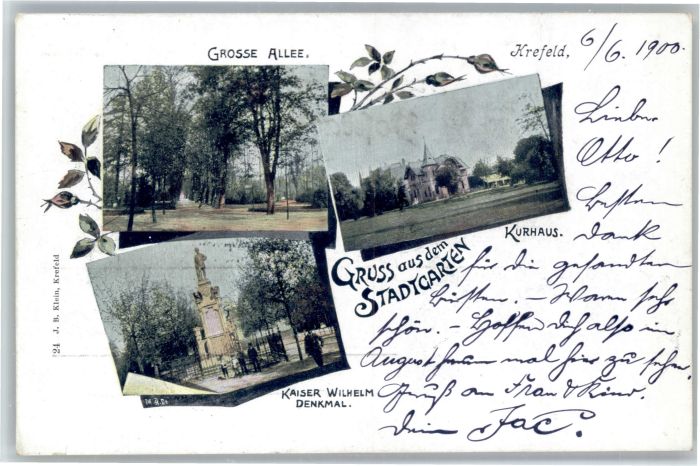 GROSSE ALLEE.
Krefeld, 6/6. 1900.
Lieber
Otto!
Besten
Dank
für die gesandten
Leisten. – Waren sehr
schön. – Hoffen Dich also im
August mal hier zu sehen.
Gruß an Frau & Kind.
Dein Jac.
KURHAUS.
GRUSS aus dem
STADTGARTEN
KAISER WILHELM
DENKMAL.
24 J. B. Klein, Krefeld